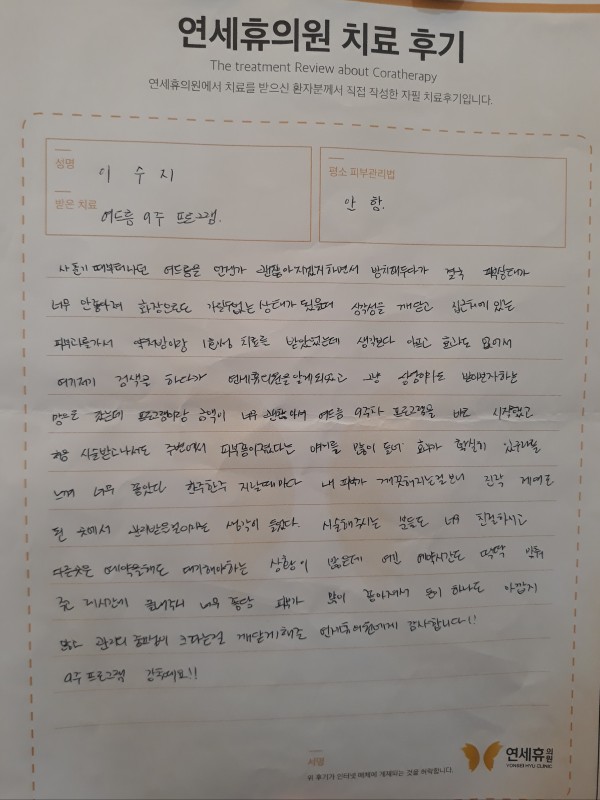 연세휴의원 치료 후기
The treatment Review about Coratherapy
연세휴의원에서 치료를 받으신 환자분께서 직접 작성한 자필 치료후기입니다.
성명
이 수 지
평소 피부관리법
안 함.
받은 치료
여드름 9주 프로그램.
사춘기 때부터나던 여드름을 언젠가 괜찮아지겠지하면서 방치해두다가 결국 피부상태가
너무 안좋아져 화장으로도 가릴수없는 상태가 됬을때 심각성을 깨닫고 집근처에 있는
피부과를가서 약처방이랑 1회성 치료를 받았었는데 생각보다 아프고 효과도 없어서
여기저기 검색을 하다가 연세휴의원을알게되었고 그냥 상담이라도 받아보자하는
맘으로 갔는데 프로그램이랑 금액이 너무 괜찮아서 여드름 9주차 프로그램을 바로 시작했고
처음 시술받고나서도 주변에서 피부좋아졌다는 얘기를 많이 들어 효과가 확실히 있구나를
느껴 너무 좋았다. 한주한주 지날때마다 내 피부가 깨끗해지는걸보니 진작 제대로
된 곳에서 관리받을걸이라는 생각이 들었다. 시술해주시는 분들도 너무 친절하시고
다른곳은 예약을해도 대기해야하는 상황이 많은데 여긴 예약시간도 딱딱 맞춰
주고 제시간에 끝내주니 너무 좋당 피부가 많이 좋아져서 돈이 하나도 아깝지
않소 관리의 중요성이 크다는걸 깨닫게해준 연세휴의원에게 감사합니다!!
9주 프로그램 강추예요!!
서명
위 후기가 인터넷 매체에 게재되는 것을 허락합니다.
연세휴의원
YONSEI HYU CLINIC